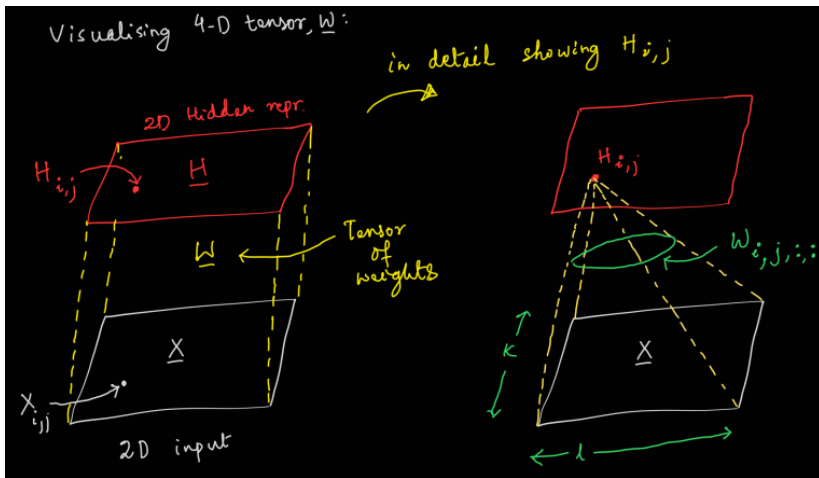 Visualising 4-D tensor, W:
in detail showing H i,j
2D Hidden repr.
H i,j
H
W
Tensor
of
weights
X
X i,j
2D input
H i,j
W i,j,:,:
K
X
l